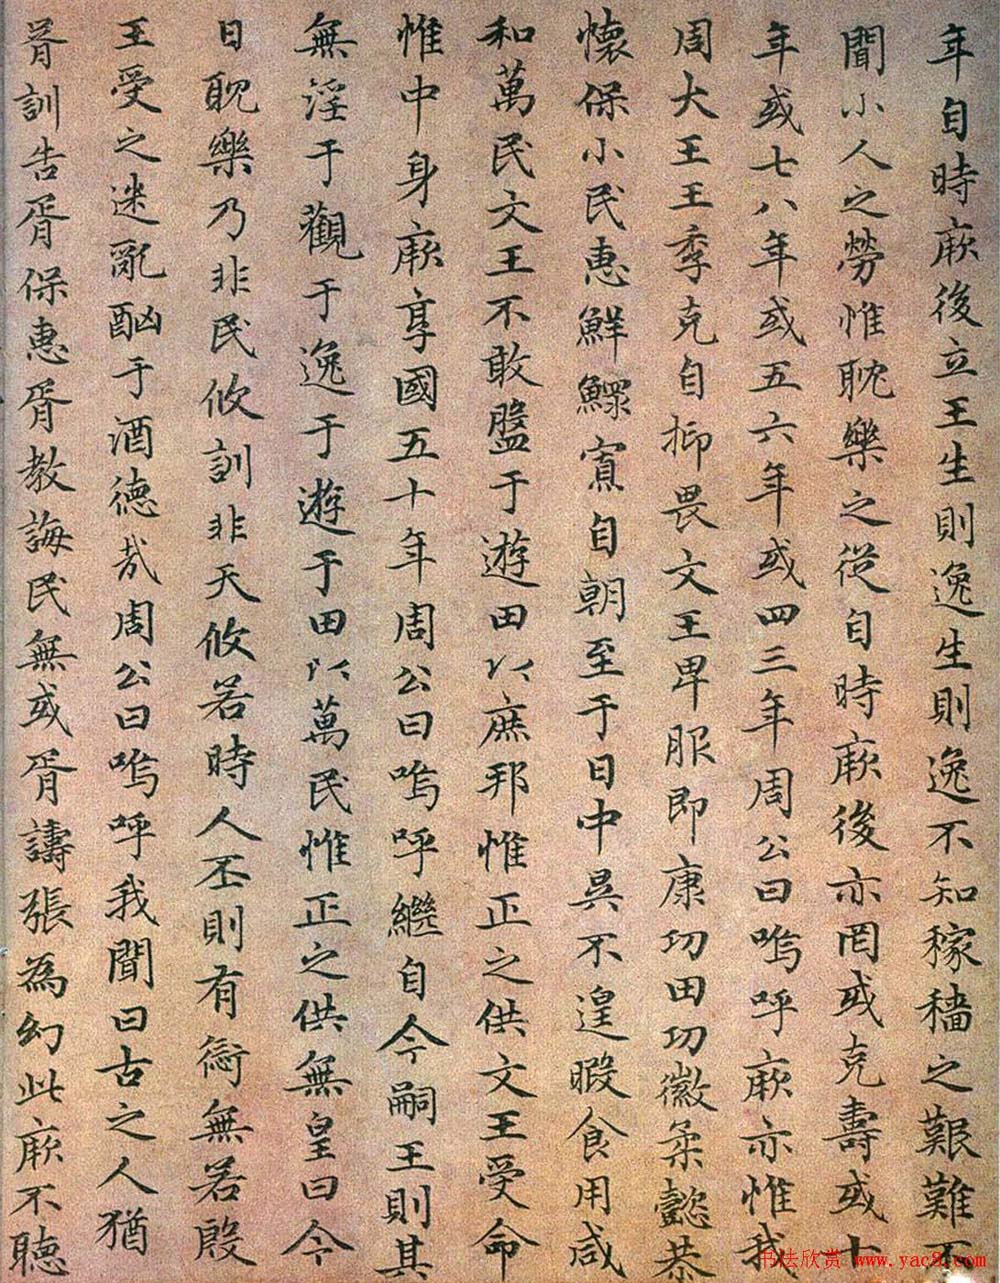 年自時厥後立王生則逸生則逸不知稼穡之艱難不
聞小人之勞惟耽樂之從自時厥後亦罔或克壽或十
年或七八年或五六年或四三年周公曰嗚呼厥亦惟我
周大王王季克自抑畏文王卑服即康功田功徽柔懿恭
懷保小民惠鮮鰥寡自朝至于日中昃不遑暇食用咸
和萬民文王不敢盤于遊田以庶邦惟正之供文王受命
惟中身厥享國五十年周公曰嗚呼繼自今嗣王則其
無淫于觀于逸于遊于田以萬民惟正之供無皇曰今
日耽樂乃非民攸訓非天攸若時人丕則有愆無若殷
王受之迷亂酗于酒德哉周公曰嗚呼我聞曰古之人猶
胥訓告胥保惠胥教誨民無或胥譸張為幻此厥不聽
书法欣赏 www.yac8.com